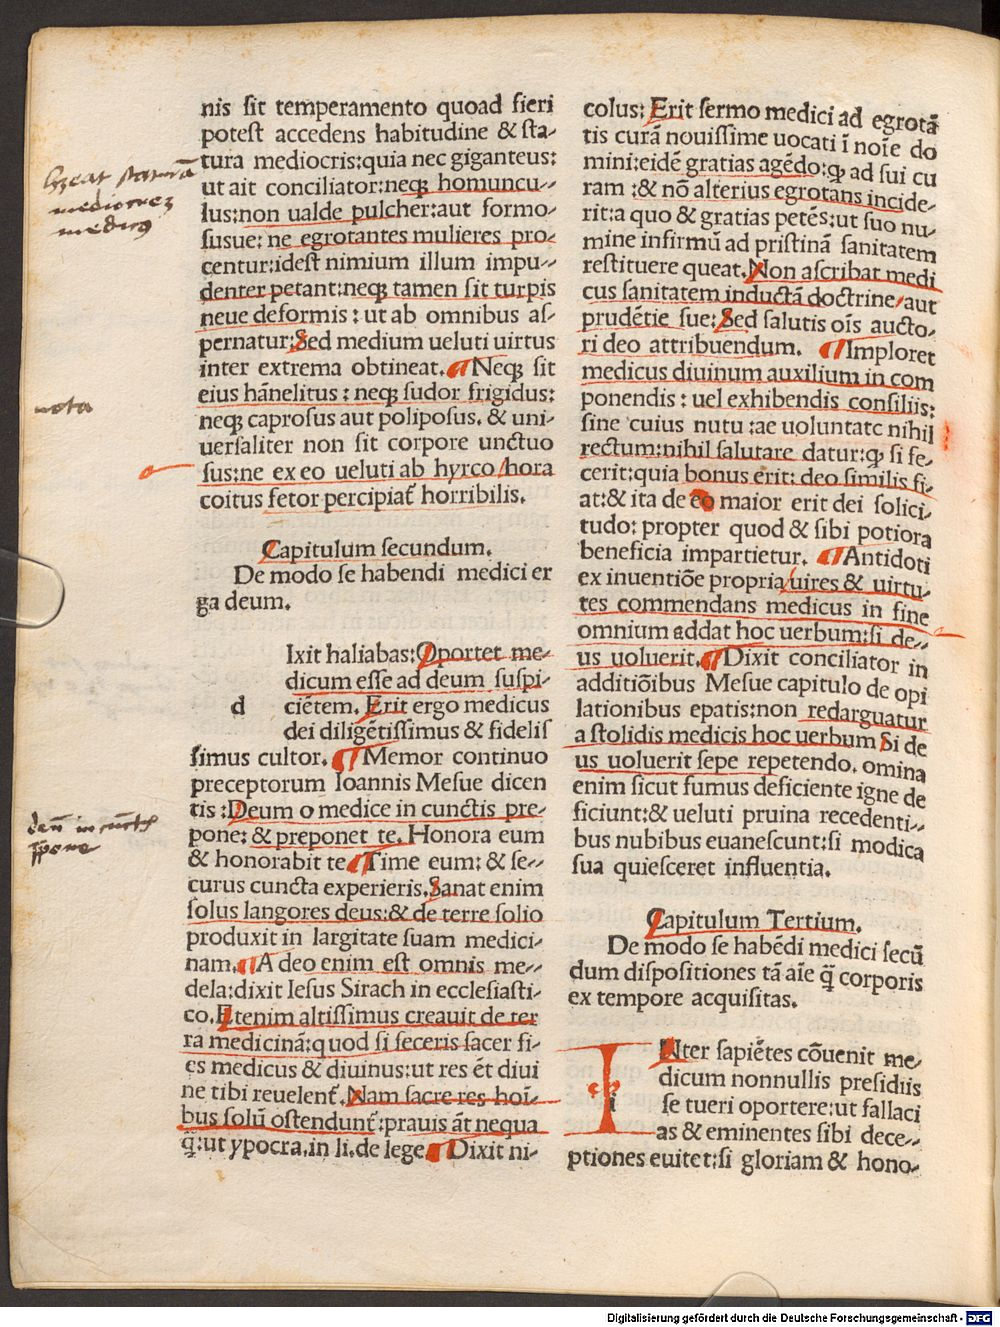 nis sit temperamento quoad fieri
potest accedens habitudine & sta-
tura mediocris:quia nec giganteus:
ut ait conciliator:neqꝫ homuncu-
lus:non ualde pulcher:aut formo-
susue: ne egrotantes mulieres pro-
centur:idest nimium illum impu-
denter petant:neqꝫ tamen sit turpis
neue deformis : ut ab omnibus as-
pernatur:Sed medium ueluti uirtus
inter extrema obtineat.¶Neqꝫ sit
eius hãnelitus : neqꝫ sudor frigidus:
neqꝫ caprosus aut poliposus. & uni-
uersaliter non sit corpore unctuo
sus:ne ex eo ueluti ab hyrco/hora
coitus fetor percipiat̃ horribilis.
Capitulum secundum.
De modo se habendi medici er
ga deum.
Ixit haliabas:Oportet me-
dicum esse ad deum suspi-
d
ciẽtem. Erit ergo medicus
dei diligẽtissimus & fidelis
simus cultor. ¶Memor continuo
preceptorum Ioannis Mesue dicen
tis :Deum o medice in cunctis pre-
pone: & preponet te. Honora eum
& honorabit te¶Time eum: & se-
curus cuncta experieris.Sanat enim
solus langores deus:& de terre solio
produxit in largitate suam medici-
nam.¶A deo enim est omnis me-
dela:dixit Iesus Sirach in ecclesiasti-
co.Etenim altissimus creauit de ter
ra medicinã:quod si feceris sacer fi-
es medicus & diuinus:ut res ẽt diui
ne tibi reuelent̃.Nam sacre res hoĩ-
bus solũ ostendunt̃:prauis ãt nequa
q̃:ut ypocra.in li.de lege.¶Dixit ni-
colus: Erit sermo medici ad egrotã
tis curã nouissime uocati ĩ noĩe do
mini:eidẽ gratias agẽdo:ꝙ ad sui cu
ram :& nõ alterius egrotans incide-
rit:a quo & gratias petẽs:ut suo nu-
mine infirmũ ad pristinã sanitatem
restituere queat.Non ascribat medi
cus sanitatem inductã doctrine/aut
prudẽtie sue:Sed salutis oĩs aucto-
ri deo attribuendum. ¶Imploret
medicus diuinum auxilium in com
ponendis : uel exhibendis consiliis:
sine cuius nutu :ac uoluntate nihil
rectum:nihil salutare datur:ꝙ si fe-
cerit:quia bonus erit: deo similis fi-
at:& ita de eo maior erit dei solici-
tudo: propter quod & sibi potiora
beneficia impartietur. ¶Antidoti
ex inuentiõe propria/uires & uirtu-
tes commendans medicus in fine
omnium addat hoc uerbum:si de-
us uoluerit.¶Dixit conciliator in
additiõibus Mesue capitulo de opi
lationibus epatis:non redarguatur
a stolidis medicis hoc uerbum Si de
us uoluerit sepe repetendo. omina
enim sicut fumus deficiente igne de
ficiunt:& ueluti pruina recedenti-
bus nubibus euanescunt:si modica
sua quiesceret influentia.
Capitulum Tertium.
De modo se habẽdi medici secũ
dum dispositiones tã aĩe q̃ corporis
ex tempore acquisitas.
Nter sapiẽtes cõuenit me-
dicum nonnullis presidiis
i
se tueri oportere:ut fallaci
as & eminentes sibi dece-
ptiones euitet:si gloriam & hono-
staturã
mediocrez
medicꝯ
nota
deũ in cunctis
Digitalisierung gefördert durch die Deutsche Forschungsgemeinschaft - DFG